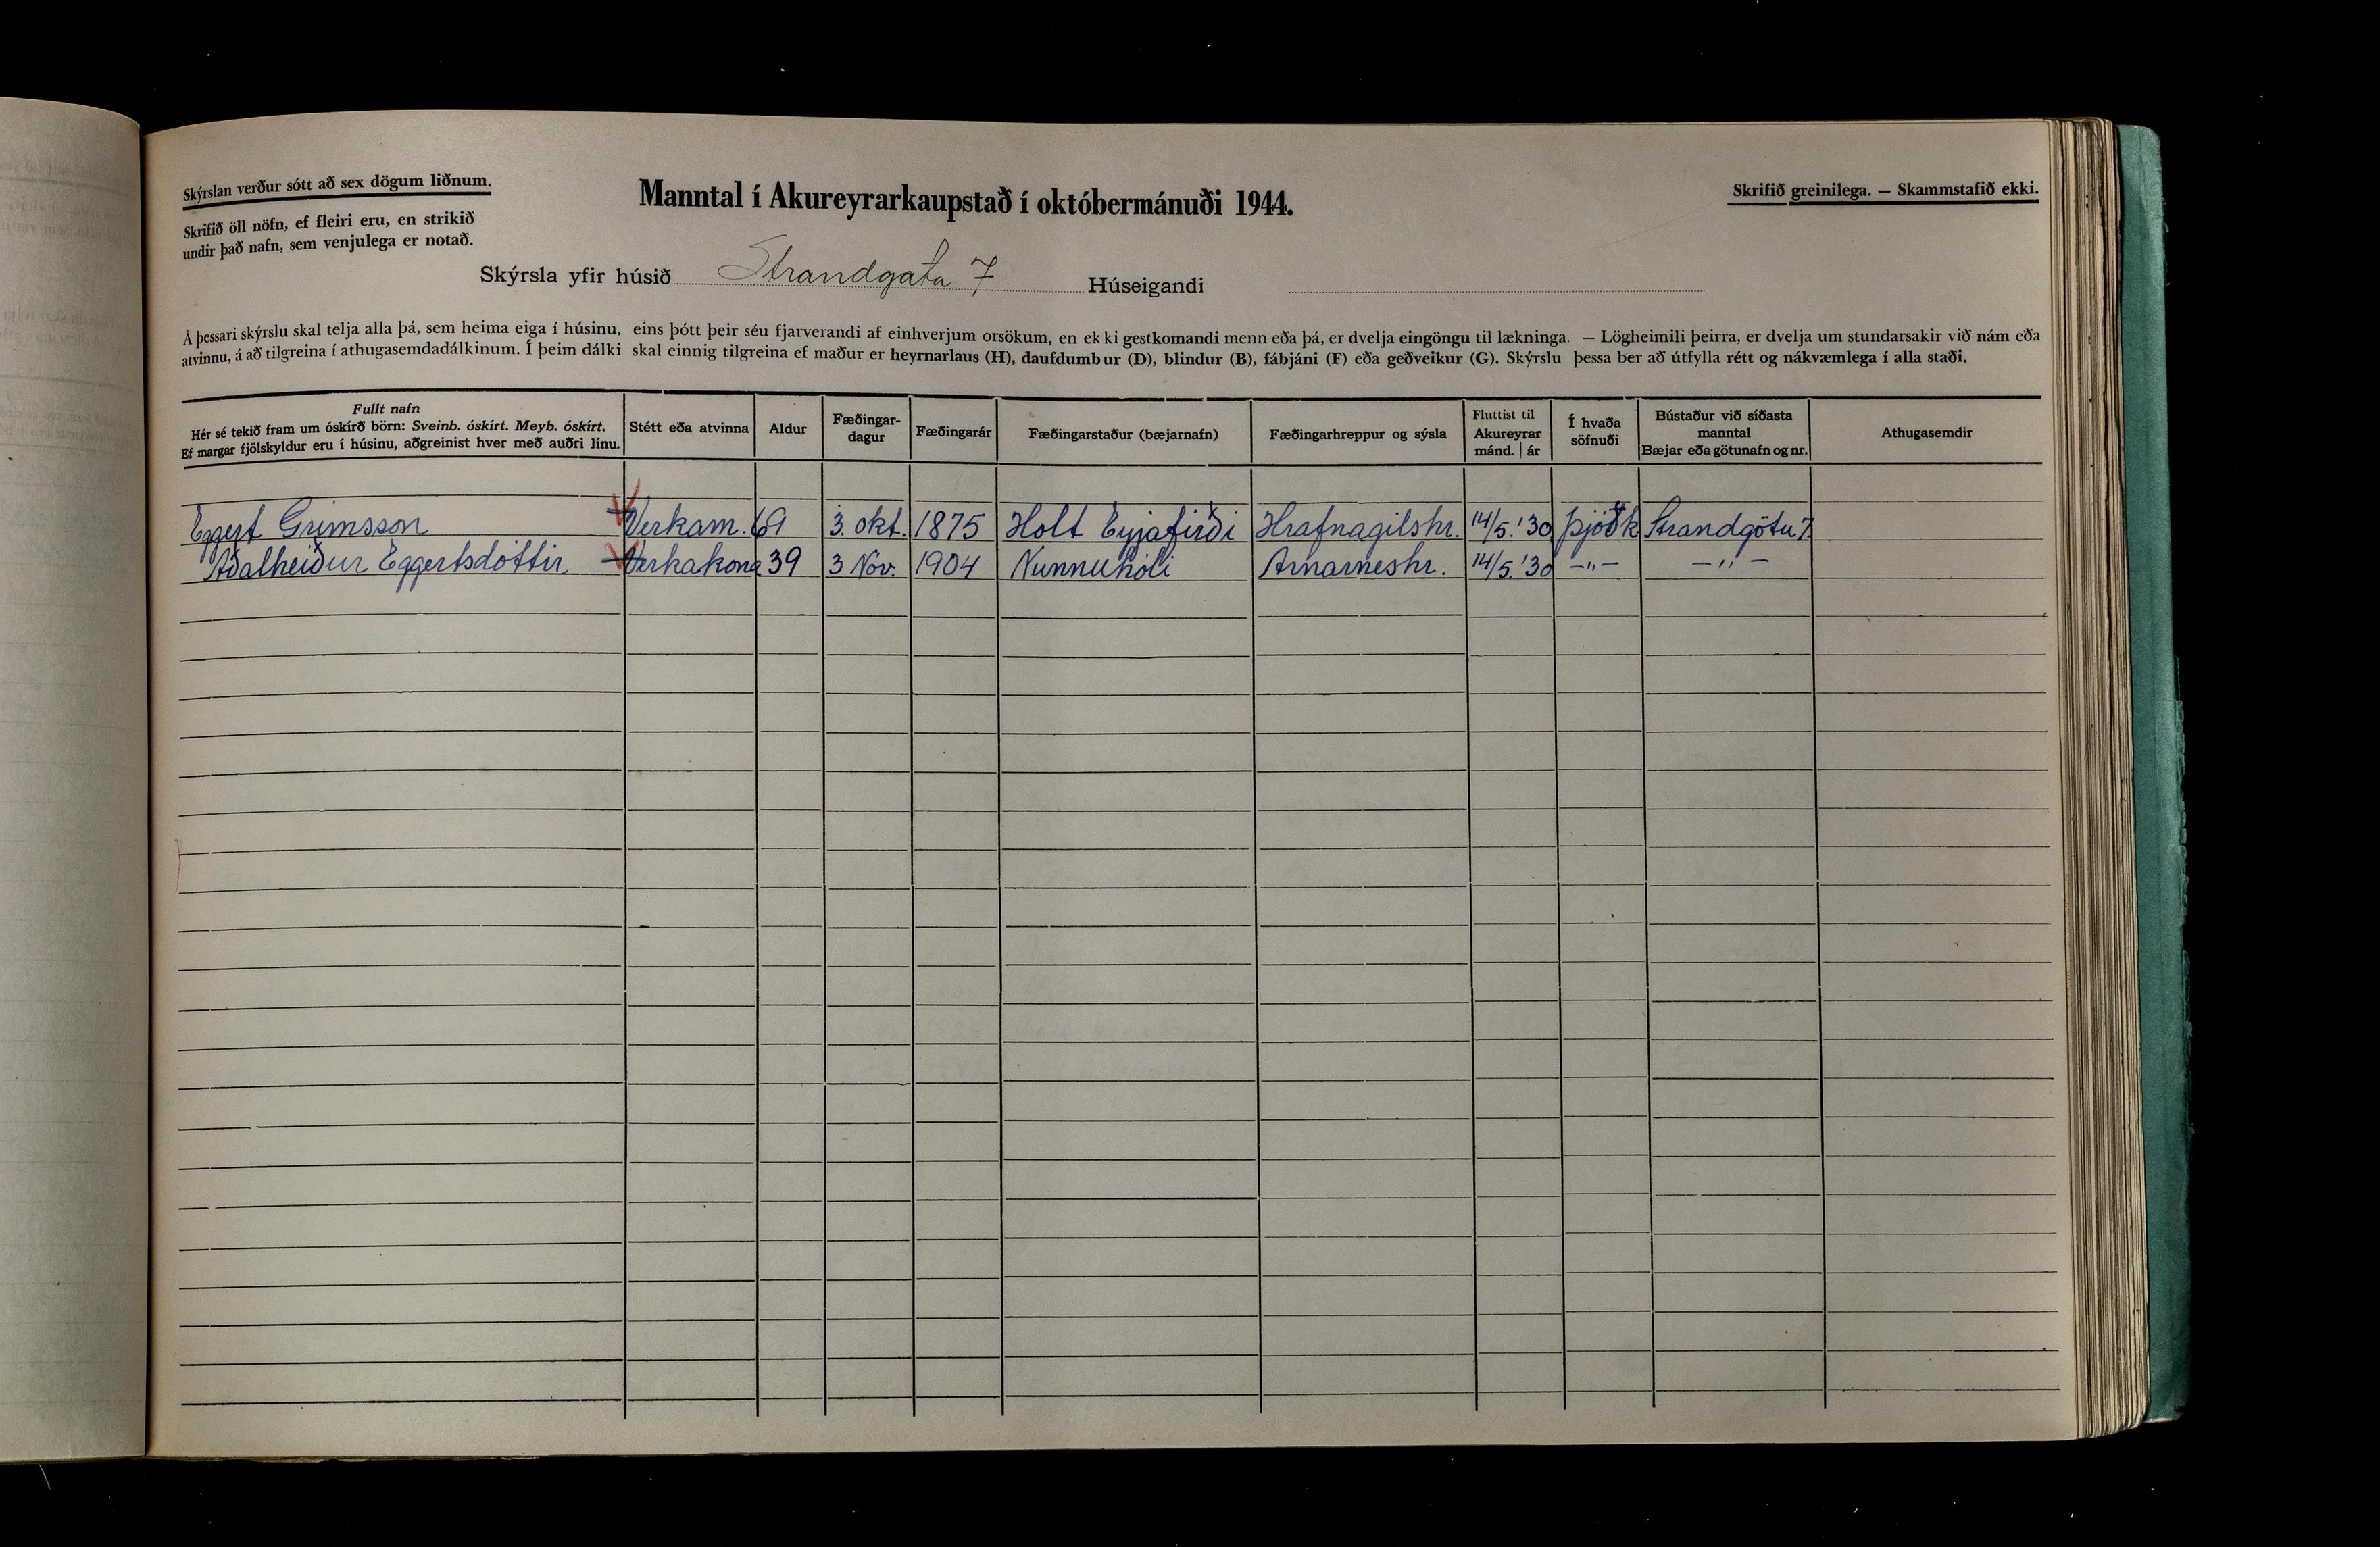 Skýrslan verður sótt að sex dögum liðnum.
Skrifið öll nöfn, ef fleiri eru, en strikið
undir það nafn, sem venjulega er notað.
Manntal í Akureyrarkaupstað í októbermánuði 1944.
Skrifið greinilega. — Skammstafið ekki.
Skýrsla yfir húsið Strandgata 7 Húseigandi
Á þessari skýrslu skal telja alla þá, sem heima eiga í húsinu, eins þótt þeir séu fjarverandi af einhverjum orsökum, en ekki gestkomandi menn eða þá, er dvelja eingöngu til lækninga. — Lögheimili þeirra, er dvelja um stundarsakir við nám eða
atvinnu, á að tilgreina í athugasemdadálkinum. Í þeim dálki skal einnig tilgreina ef maður er heyrnarlaus (H), daufdumbur (D), blindur (B), fábjáni (F) eða geðveikur (G). Skýrslu þessa ber að útfylla rétt og nákvæmlega í alla staði.
Fullt nafn
Hér sé tekið fram um óskírð börn: Sveinb. óskírt. Meyb. óskírt.
Ef margar fjölskyldur eru í húsinu, aðgreinist hver með auðri línu.
Stétt eða atvinna
Aldur
Fæðingar-
dagur
Fæðingarár
Fæðingarstaður (bæjarnafn)
Fæðingarhreppur og sýsla
Fluttist til
Akureyrar
mánd. | ár
Í hvaða
söfnuði
Bústaður við síðasta
manntal
Bæjar eða götunafn og nr.
Athugasemdir
Eggert Grímsson Verkam. 69 3. okt. 1875 Holt Eyjafirði Hrafnagilshr. 14/5. '30 Þjóðk Strandgötu 7
Aðalheiður Eggertsdóttir Verkakona 39 3 Nóv. 1904 Nunnuhóli Arnarneshr. 14/5. '30 —"— —"—